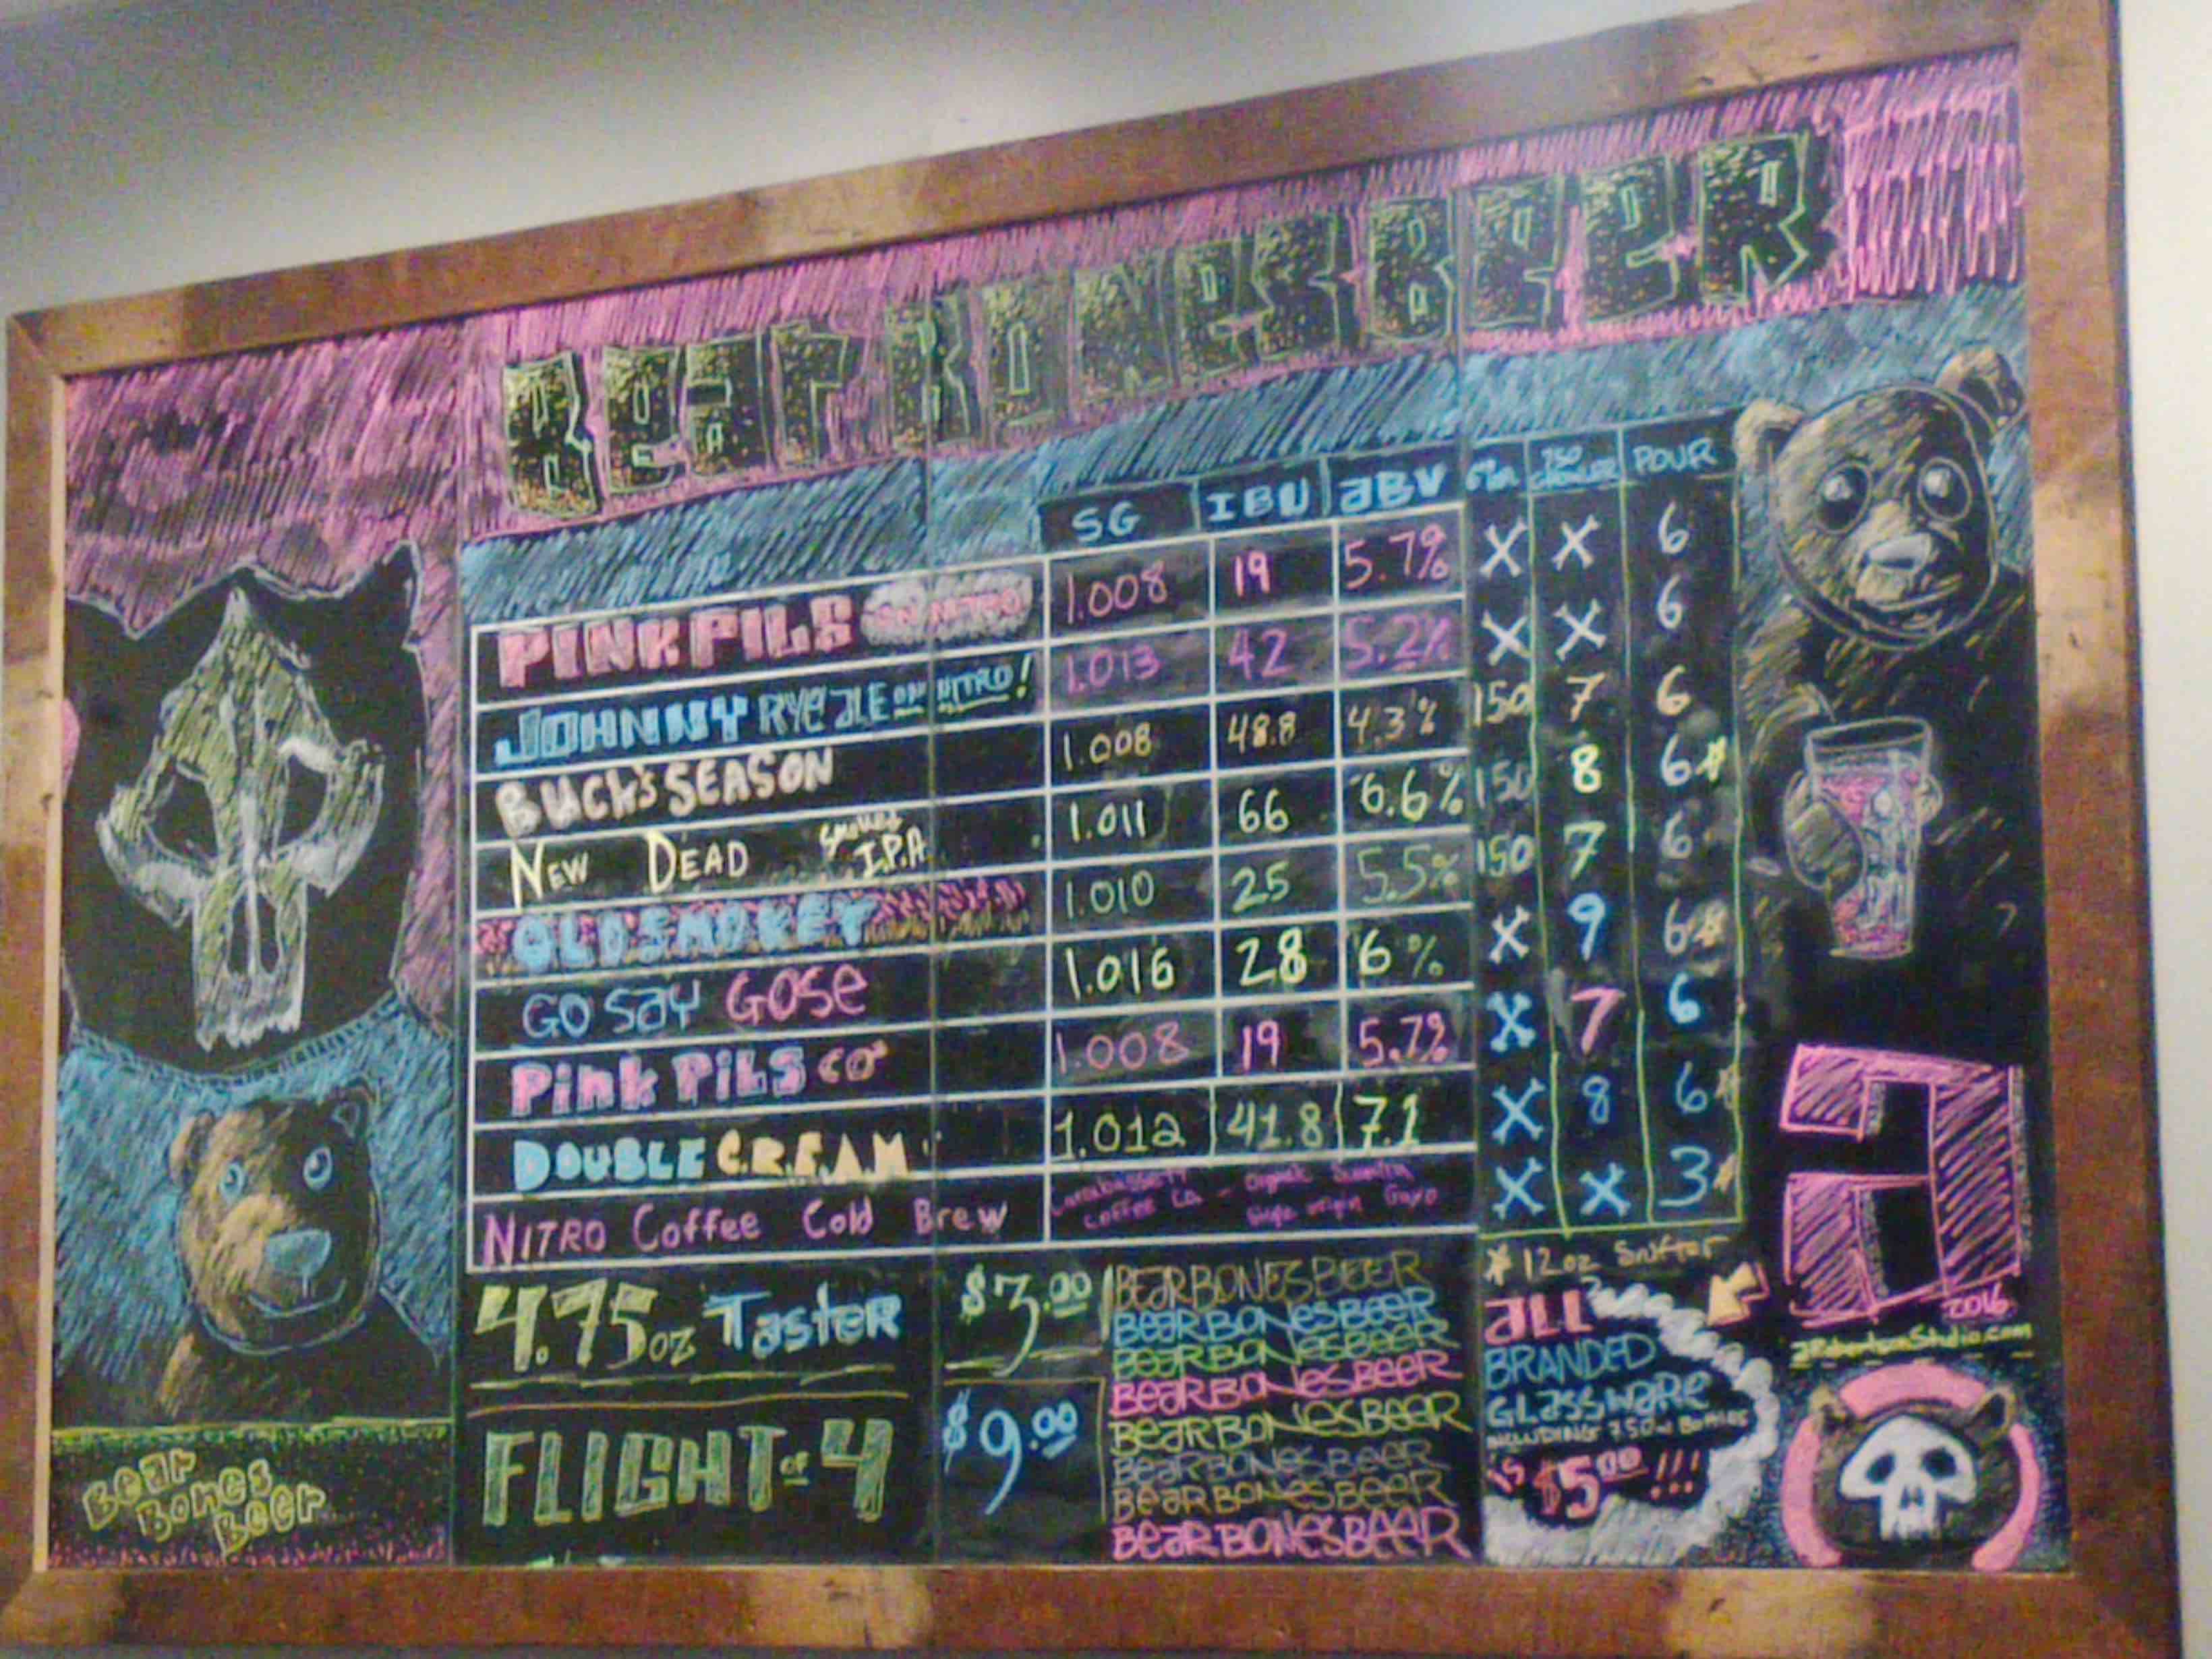 Bear Bones Beer
SG IBU aBV POUR
PINK PILS ON NITRO! 1.008 19 5.7% X X 6
JOHNNY RYE aLE ON NITRO! 1.013 42 5.2% X X 6
BUCK'S SEASON 1.008 48.8 4.3% 150 7 6
NEW DEAD SMOKED I.P.A 1.011 66 6.6% 150 8 6*
OLD SMOKEY 1.010 25 5.5% 150 7 6
GO SaY GOSe 1.016 28 6% X 9 6*
Pink PiLS CO² 1.008 19 5.7% X 7 6
DOUBLE C.R.E.A.M. 1.012 41.8 7.1 X 8 6*
NITRO Coffee Cold Brew X X 3*
Coffee Co. - Organic Sumatra
* 12oz Snifter
4.75oz Taster $3.00
FLIGHT OF 4 $9.00
BEaRBONESBEER
BeaRBONesBeeR
BeaRBONesBEER
BeaRBONesBeeR
BeaRBONesBeeR
BeaRBONesBeeR
BeaRBONesBeeR
BeaRBONesBeeR
aLL
BRANDED
GLassWaRe
INCLUDING 750ml Bottles
is $5.00 !!!
2016
aRobertsonStudio.com
Bear
Bones
Beer